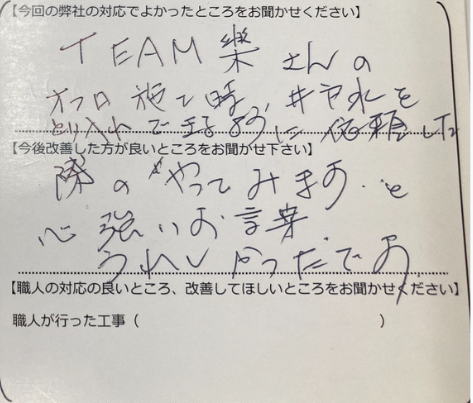 【今回の弊社の対応でよかったところをお聞かせください】
TEAM樂さんの
オフロ施工時、井戸水を
とり入れできるように依頼した
【今後改善した方が良いところをお聞かせ下さい】
際の〝やってみます〟と
心強いお言葉
うれしかったです。
【職人の対応の良いところ、改善してほしいところをお聞かせください】
職人が行った工事（　　　　　　　　　　　　　　　　）